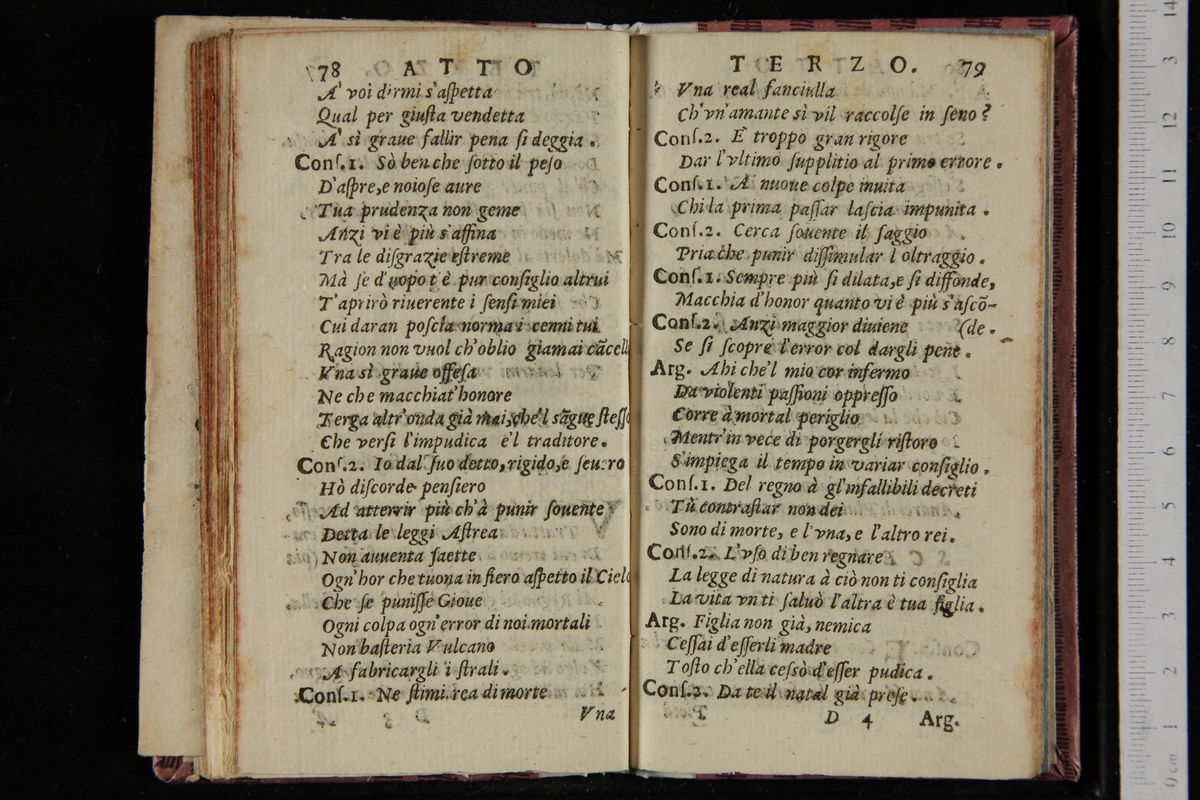 78 ATTO
A' voi dirmi s'aſpetta
Qual per giuſta vendetta
A' sì graue fallir pena ſi deggia.
Conſ.1. Sò ben che ſotto il peſo
D'aſpre, e noioſe aure
Tua prudenza non geme
Anzi vi è più s'affina
Tra le diſgrazie eſtreme
Mà ſe d'uopo t'è pur conſiglio altrui
T'aprirò riuerente i ſenſi miei
Cui daran poſcia norma i cenni tui
Ragion non vuol ch'oblio giamai cācell
Vna sì graue offeſa
Ne che macchiat'honore
Terga altr'onda già mai, che'l sāgue ſteſſo
Che verſi l'impudica e'l traditore.
Conſ.2. Io dal ſuo detto, rigido, e ſeuero
Hò diſcorde penſiero
Ad atterrir più ch'à punir ſouente
Detta le leggi Aſtrea
Non auuenta ſaette
Ogn'hor che tuona in fiero aſpetto il Cielo
Che ſe puniſſe Gioue
Ogni colpa ogn'error di noi mortali
Non baſteria Vulcano
A fabricargli i ſtrali.
Conſ.1. Ne ſtimi rea di morte
Vna
TERZO. 79
Vna real fanciulla
Ch'vn'amante sì vil raccolſe in ſeno?
Conſ.2. E troppo gran rigore
Dar l'vltimo ſupplitio al primo errore.
Conſ.1. A' nuoue colpe inuita
Chi la prima paſſar laſcia impunita.
Conſ.2. Cerca ſouente il ſaggio
Pria che punir diſſimular l oltraggio.
Conſ.1. Sempre più ſi dilata, e ſi diffonde,
Macchia d'honor quanto vi è più s'aſcō-
Conſ.2. Anzi maggior diuiene (de.
Se ſi ſcopre l'error col dargli pene.
Arg. Ahi che'l mio cor infermo
Da violenti paſſioni oppreſſo
Corre à mortal periglio
Mentr'in vece di porgergli riſtoro
S'impiega il tempo in variar conſiglio.
Conſ.1. Del regno à gl'infallibili decreti
Tù contraſtar non dei
Sono di morte, e l'vna, e l'altro rei.
Conſ.2. L'vſo di ben regnare
La legge di natura à ciò non ti conſiglia
La vita vn ti ſaluò l'altra è tua figlia.
Arg. Figlia non già, nemica
Ceſſai d'eſſerli madre
Toſto ch'ella ceſsò d'eſſer pudica.
Conſ.2. Da te il natal già preſe.
D 4 Arg.